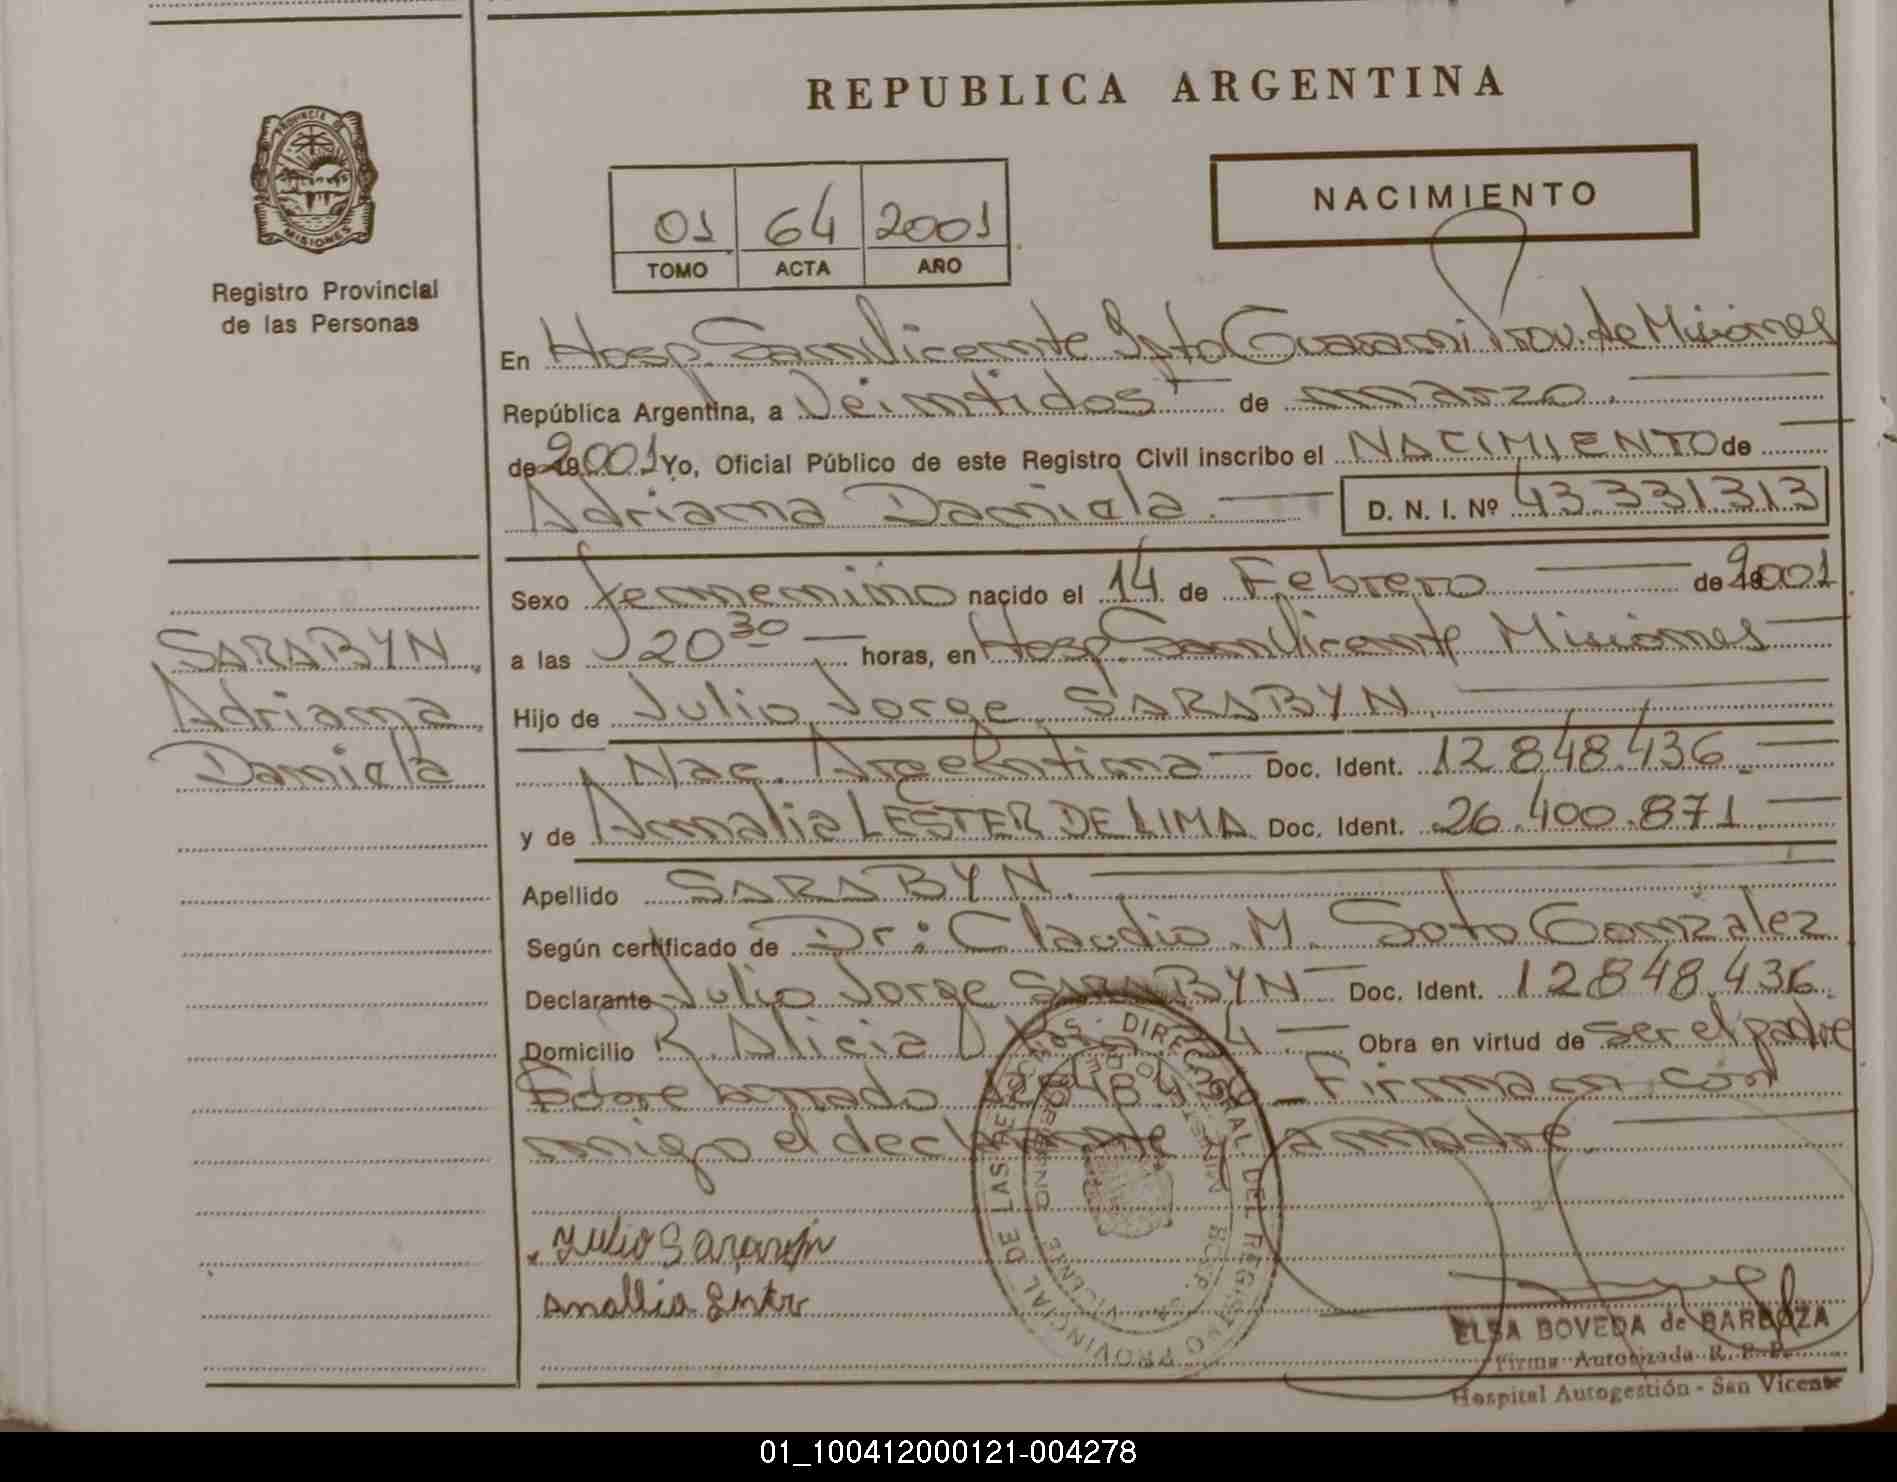 REPUBLICA ARGENTINA
PROVINCIA DE
MISIONES
Registro Provincial
de las Personas
01 64 2001
TOMO ACTA AÑO
NACIMIENTO
En Hosp. San Vicente Dpto Guarani Prov. de Misiones
República Argentina, a Veintidos de marzo
de 2001 Yo, Oficial Público de este Registro Civil inscribo el NACIMIENTO de
Adriana Daniela D. N. I. Nº 43.331.313
Sexo femenino nacido el 14 de Febrero de 2001
a las 20 30 horas, en Hosp. San Vicente Misiones
Hijo de Julio Jorge SARABYN
Nac. Argentina Doc. Ident. 12.848.436
y de Annalia LESTER DE LIMA Doc. Ident. 26.400.871
Apellido SARABYN
Según certificado de Dr: Claudio M. Soto Gonzalez
Declarante Julio Jorge SARABYN Doc. Ident. 12848.436
Domicilio R. Alicia Obra en virtud de ser el padre
Sobre borrado 12848.436 Firman con
migo el declarante y la madre.
SARABYN
Adriana
Daniela
Julio Sarabyn
DIRECCION GENERAL DEL REGISTRO PROVINCIAL DE LAS PERSONAS
ELSA BOVEDA de BARBOZA
Firma Autorizada R. P. P.
Hospital Autogestión - San Vicente
01_100412000121-004278